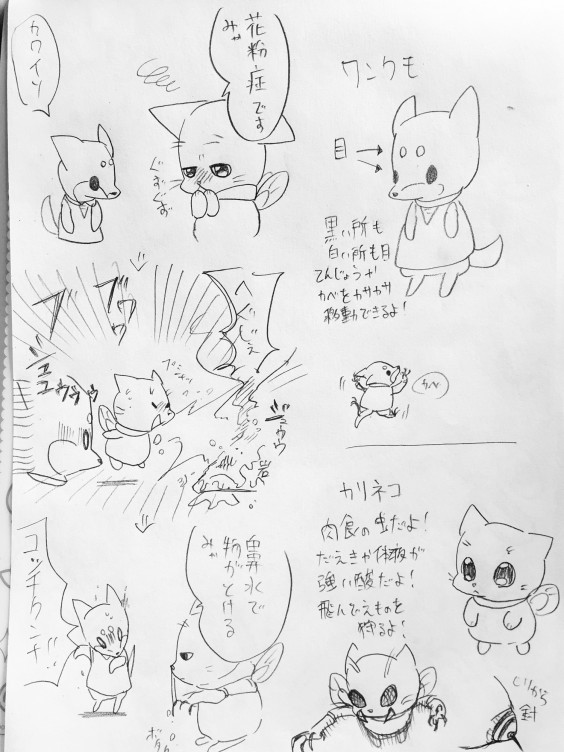 花粉症です
みゃ
カワイソ
ぐずぐず
ヘ
ブシャッ
ジュウウ
岩
鼻水で
物がとける
みゃ
コッチクンナ!!
ワンクモ
目
黒い所も
白い所も目
てんじょうや
かべをカサカサ
移動できるよ!
カリネコ
肉食の虫だよ!
だえきや体液が
強い酸だよ!
飛んでえものを
狩るよ!
しりから
針